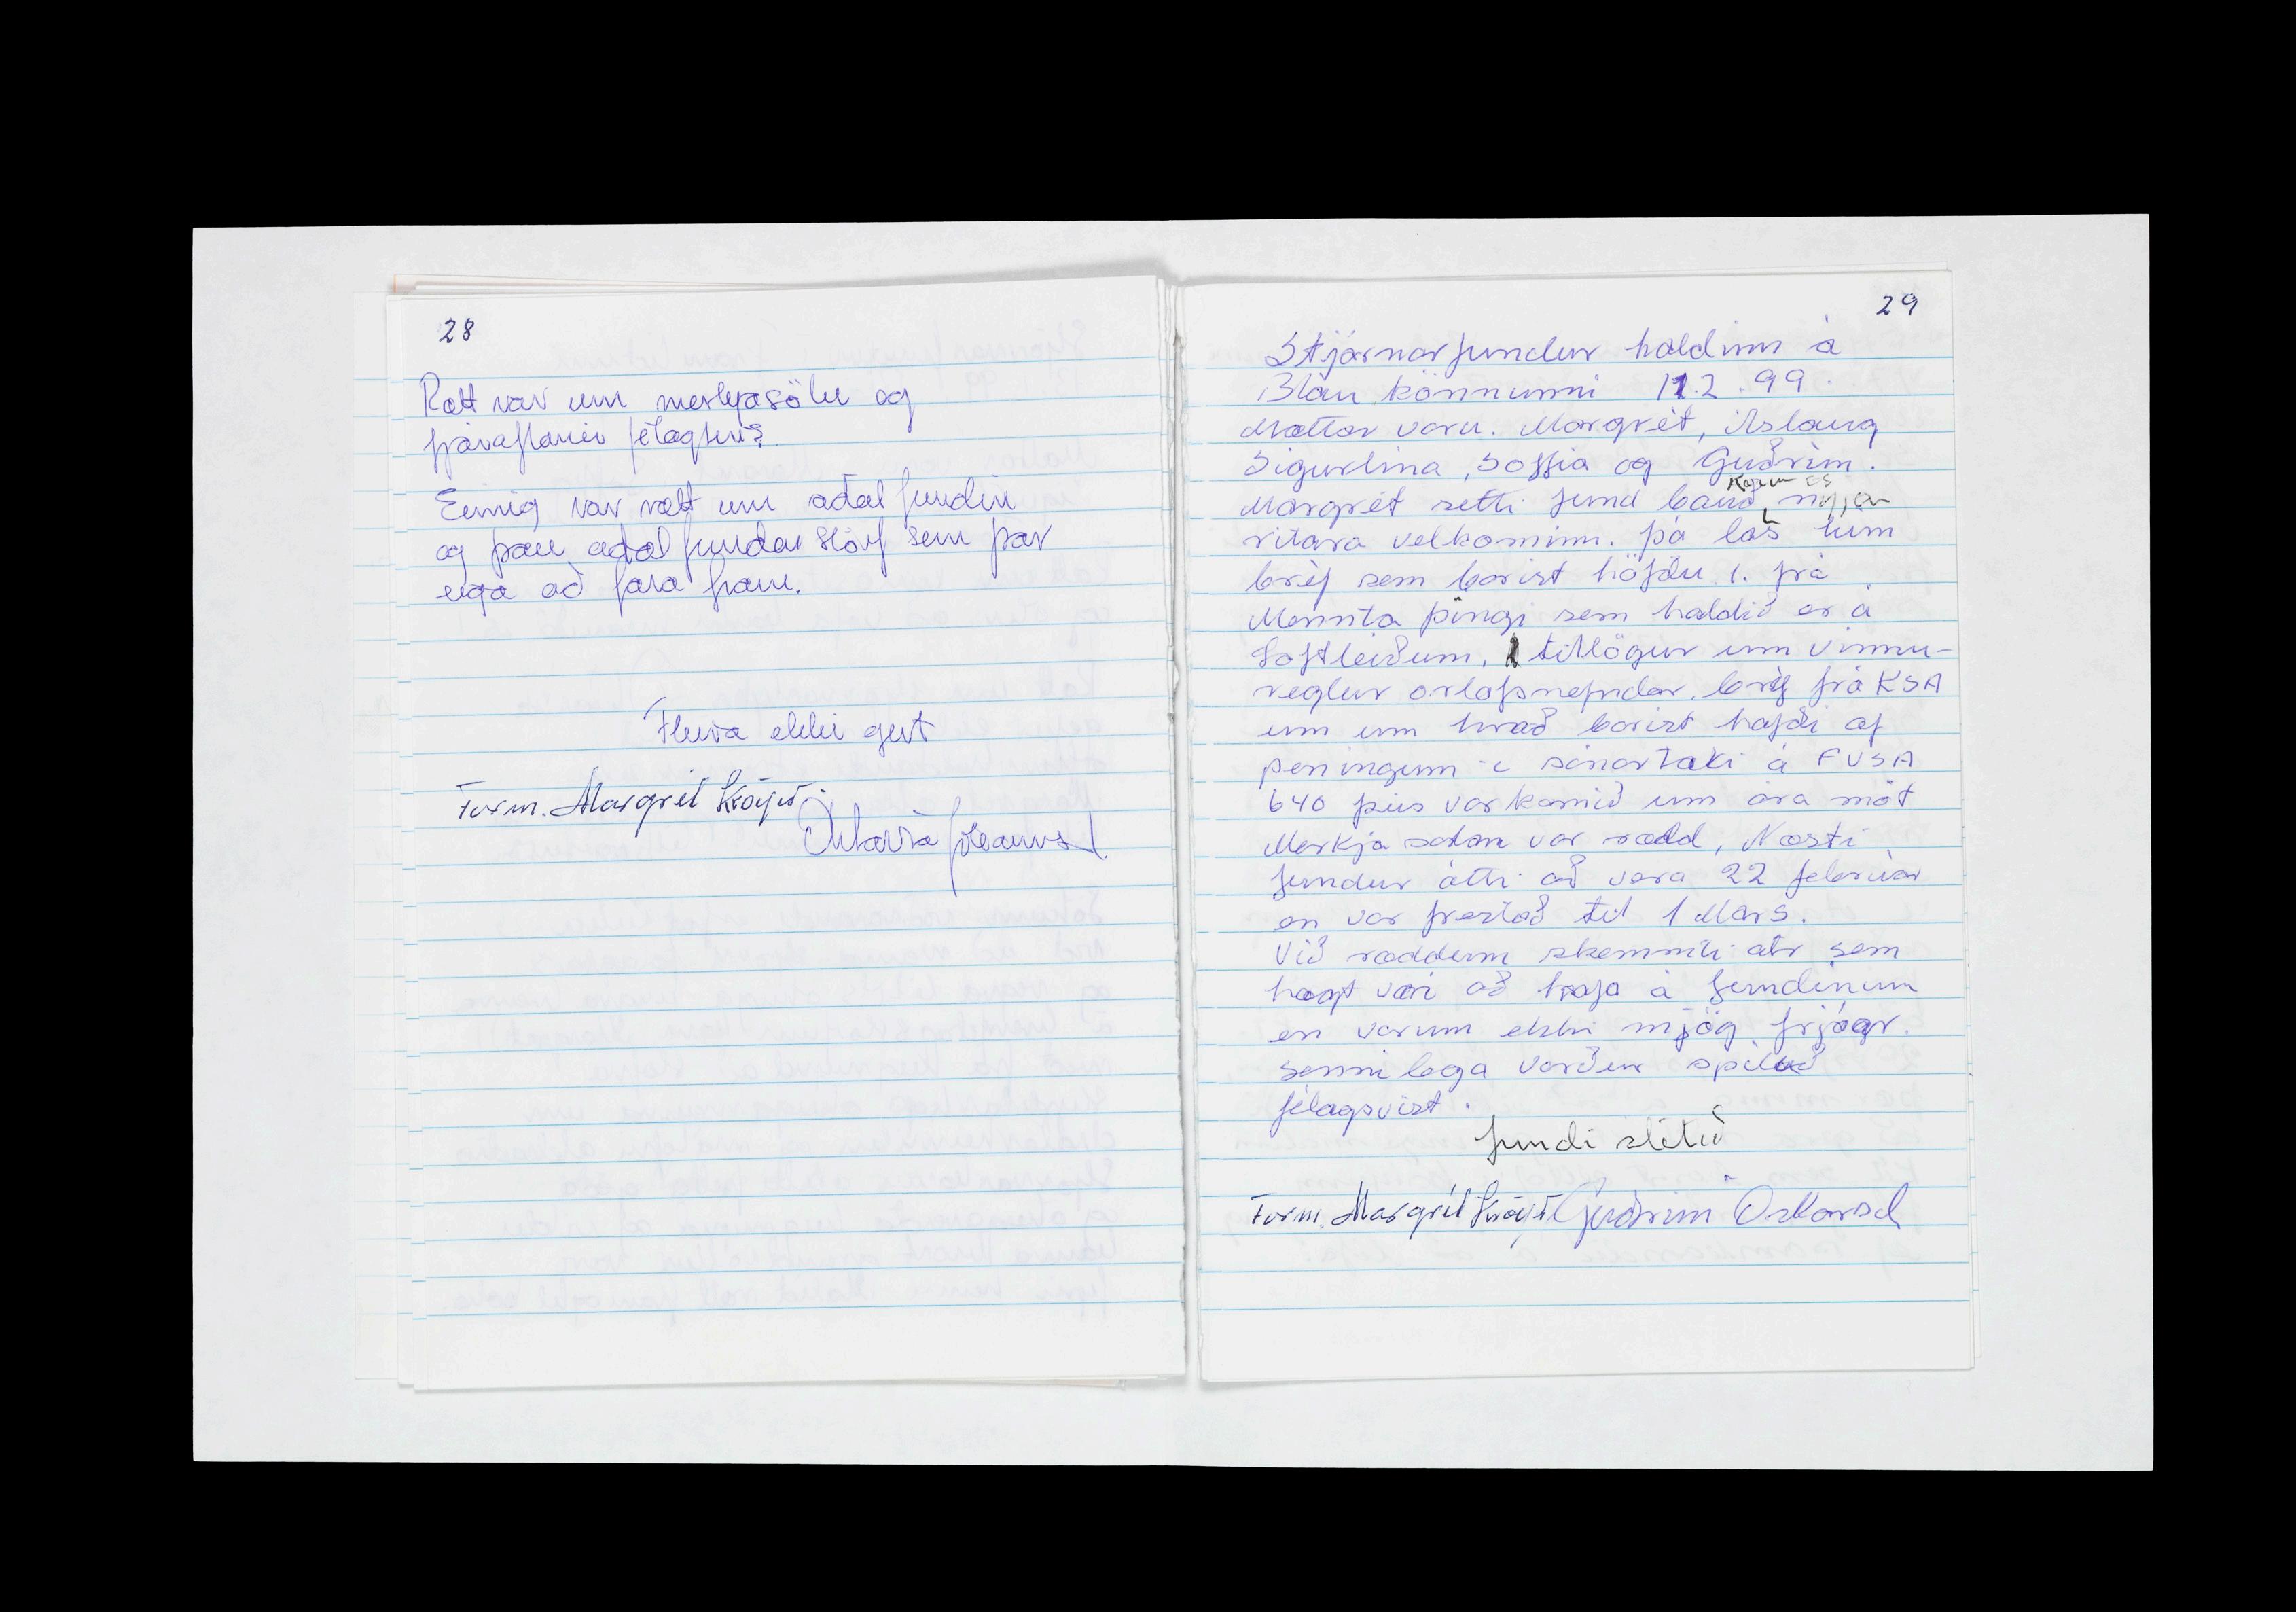 28
Rætt var um merkjasölu og
fjáraflanir félagsins.
Einnig var rætt um aðal fundin
og þau aðal fundar störf sem þar
eiga að fara fram.
Fleira ekki gert
Form. Margrét
María Jóhannsd.
29
Stjórnarfundur haldinn á
Bláu könnunni 11.2.99.
Mættar voru. Margrét, Áslaug
Sigurlína, Soffía og Guðrún.
Margrét setti fund bauð nýjan
ritara velkominn. þá las hún
bréf sem borist höfðu 1. frá
Mennta þingi sem haldið er á
Loftleiðum, tillögur um vinnu-
reglur orlofsnefndar. bréf frá KSA
um um hvað borist hafði af
peningum í sónartæki á FVSA
640 þús var komið um ára mót
Merkja salan var rædd, Næsti
fundur átti að vera 22 febrúar
en var frestað til 1 Mars.
Við ræddum skemmti atr sem
hægt væri að hafa á fundinum
en vorum ekki mjög frjóar.
Sennilega verður spiluð
félagsvist.
fundi slitið
Form. Margrét Guðrún Óskarsd